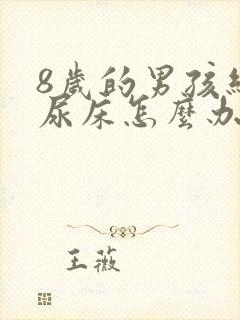 8歲的男孩經
尿床怎麼办
王薇